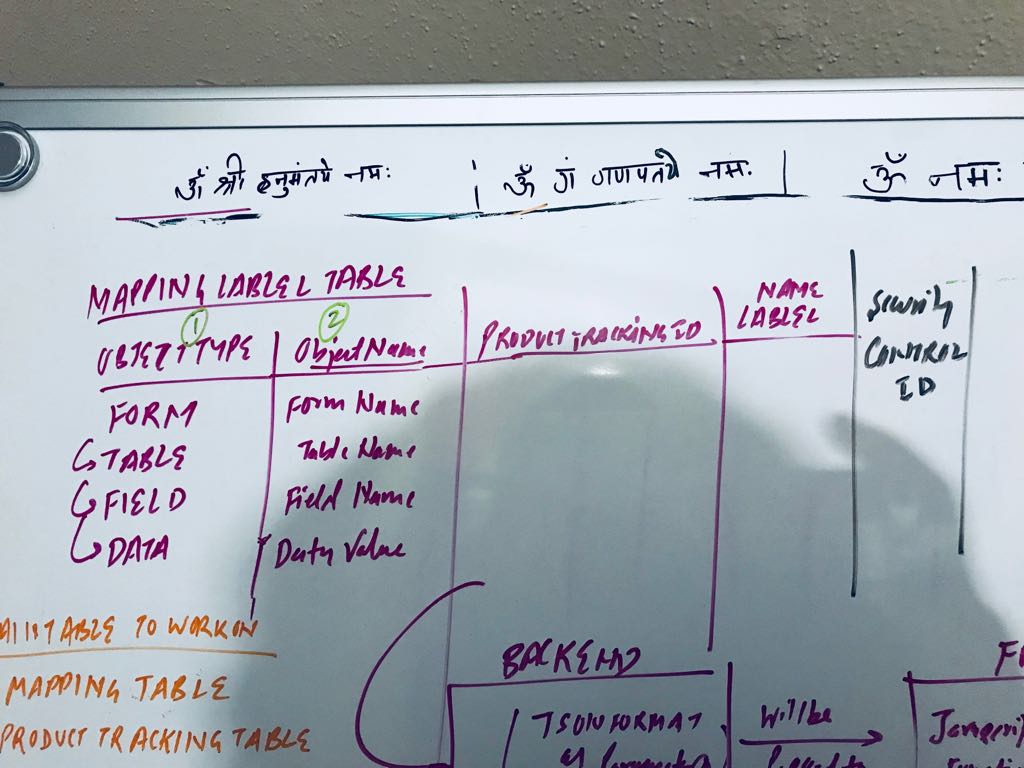 ॐ श्री हनुमंतये नमः | ॐ गं गणपतये नमः | ॐ नमः
MAPPING LABLEL TABLE
① ②
OBJECT TYPE Object Name PRODUCT TRACKING ID NAME LABLEL Security CONTROL ID
FORM Form Name
TABLE Table Name
FIELD Field Name
DATA Data Value
TABLE TO WORK ON
MAPPING TABLE
PRODUCT TRACKING TABLE
BACKEND
JSON FORMAT Will be
of